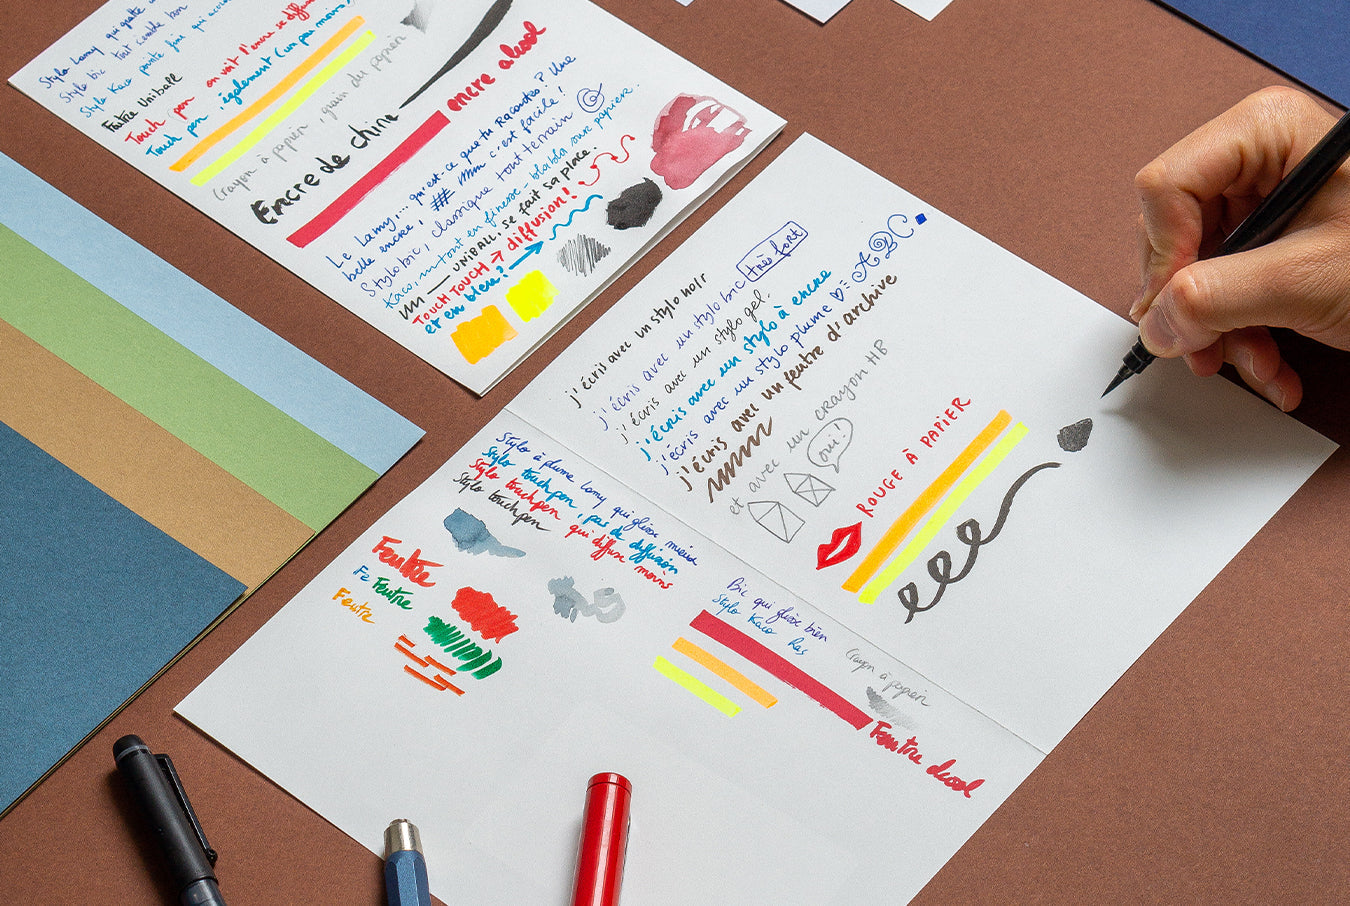 Stylo Lamy qui gratte
Stylo bic tout semble bon
Stylo Kaco pointe fine qui
Feutre Uniball
Touch pen on voit l'encre se diffuser
Touch pen également (un peu moins)
Crayon à papier, grain du papier
Encre de chine
encre alcool
Le Lamy,... qu'est-ce que tu Racontes? Une
belle encre! ## c'est facile!
Stylo bic, classique tout terrain @
Kaco, tout en finesse - blabla sur papier.
UNIBALL. se fait sa place.
TOUCH TOUCH → diffusion!
et en bleu? →
j'écris avec un stylo noir
j'écris avec un stylo bic très fort
j'écris avec un stylo gel.
j'écris avec un stylo à encre
j'écris avec un stylo plume ♡ = ABC
j'écris avec un feutre d'archive
et avec un crayon HB
oui!
ROUGE À PAPIER
Stylo à plume Lamy qui glisse mieux
Stylo touchpen, pas de diffusion
Stylo touchpen qui diffuse moins
Stylo touchpen
Feutre
Fe Feutre
Feutre
Bic qui glisse bien
Stylo Kaco Ras
Crayon à papier
Feutre alcool